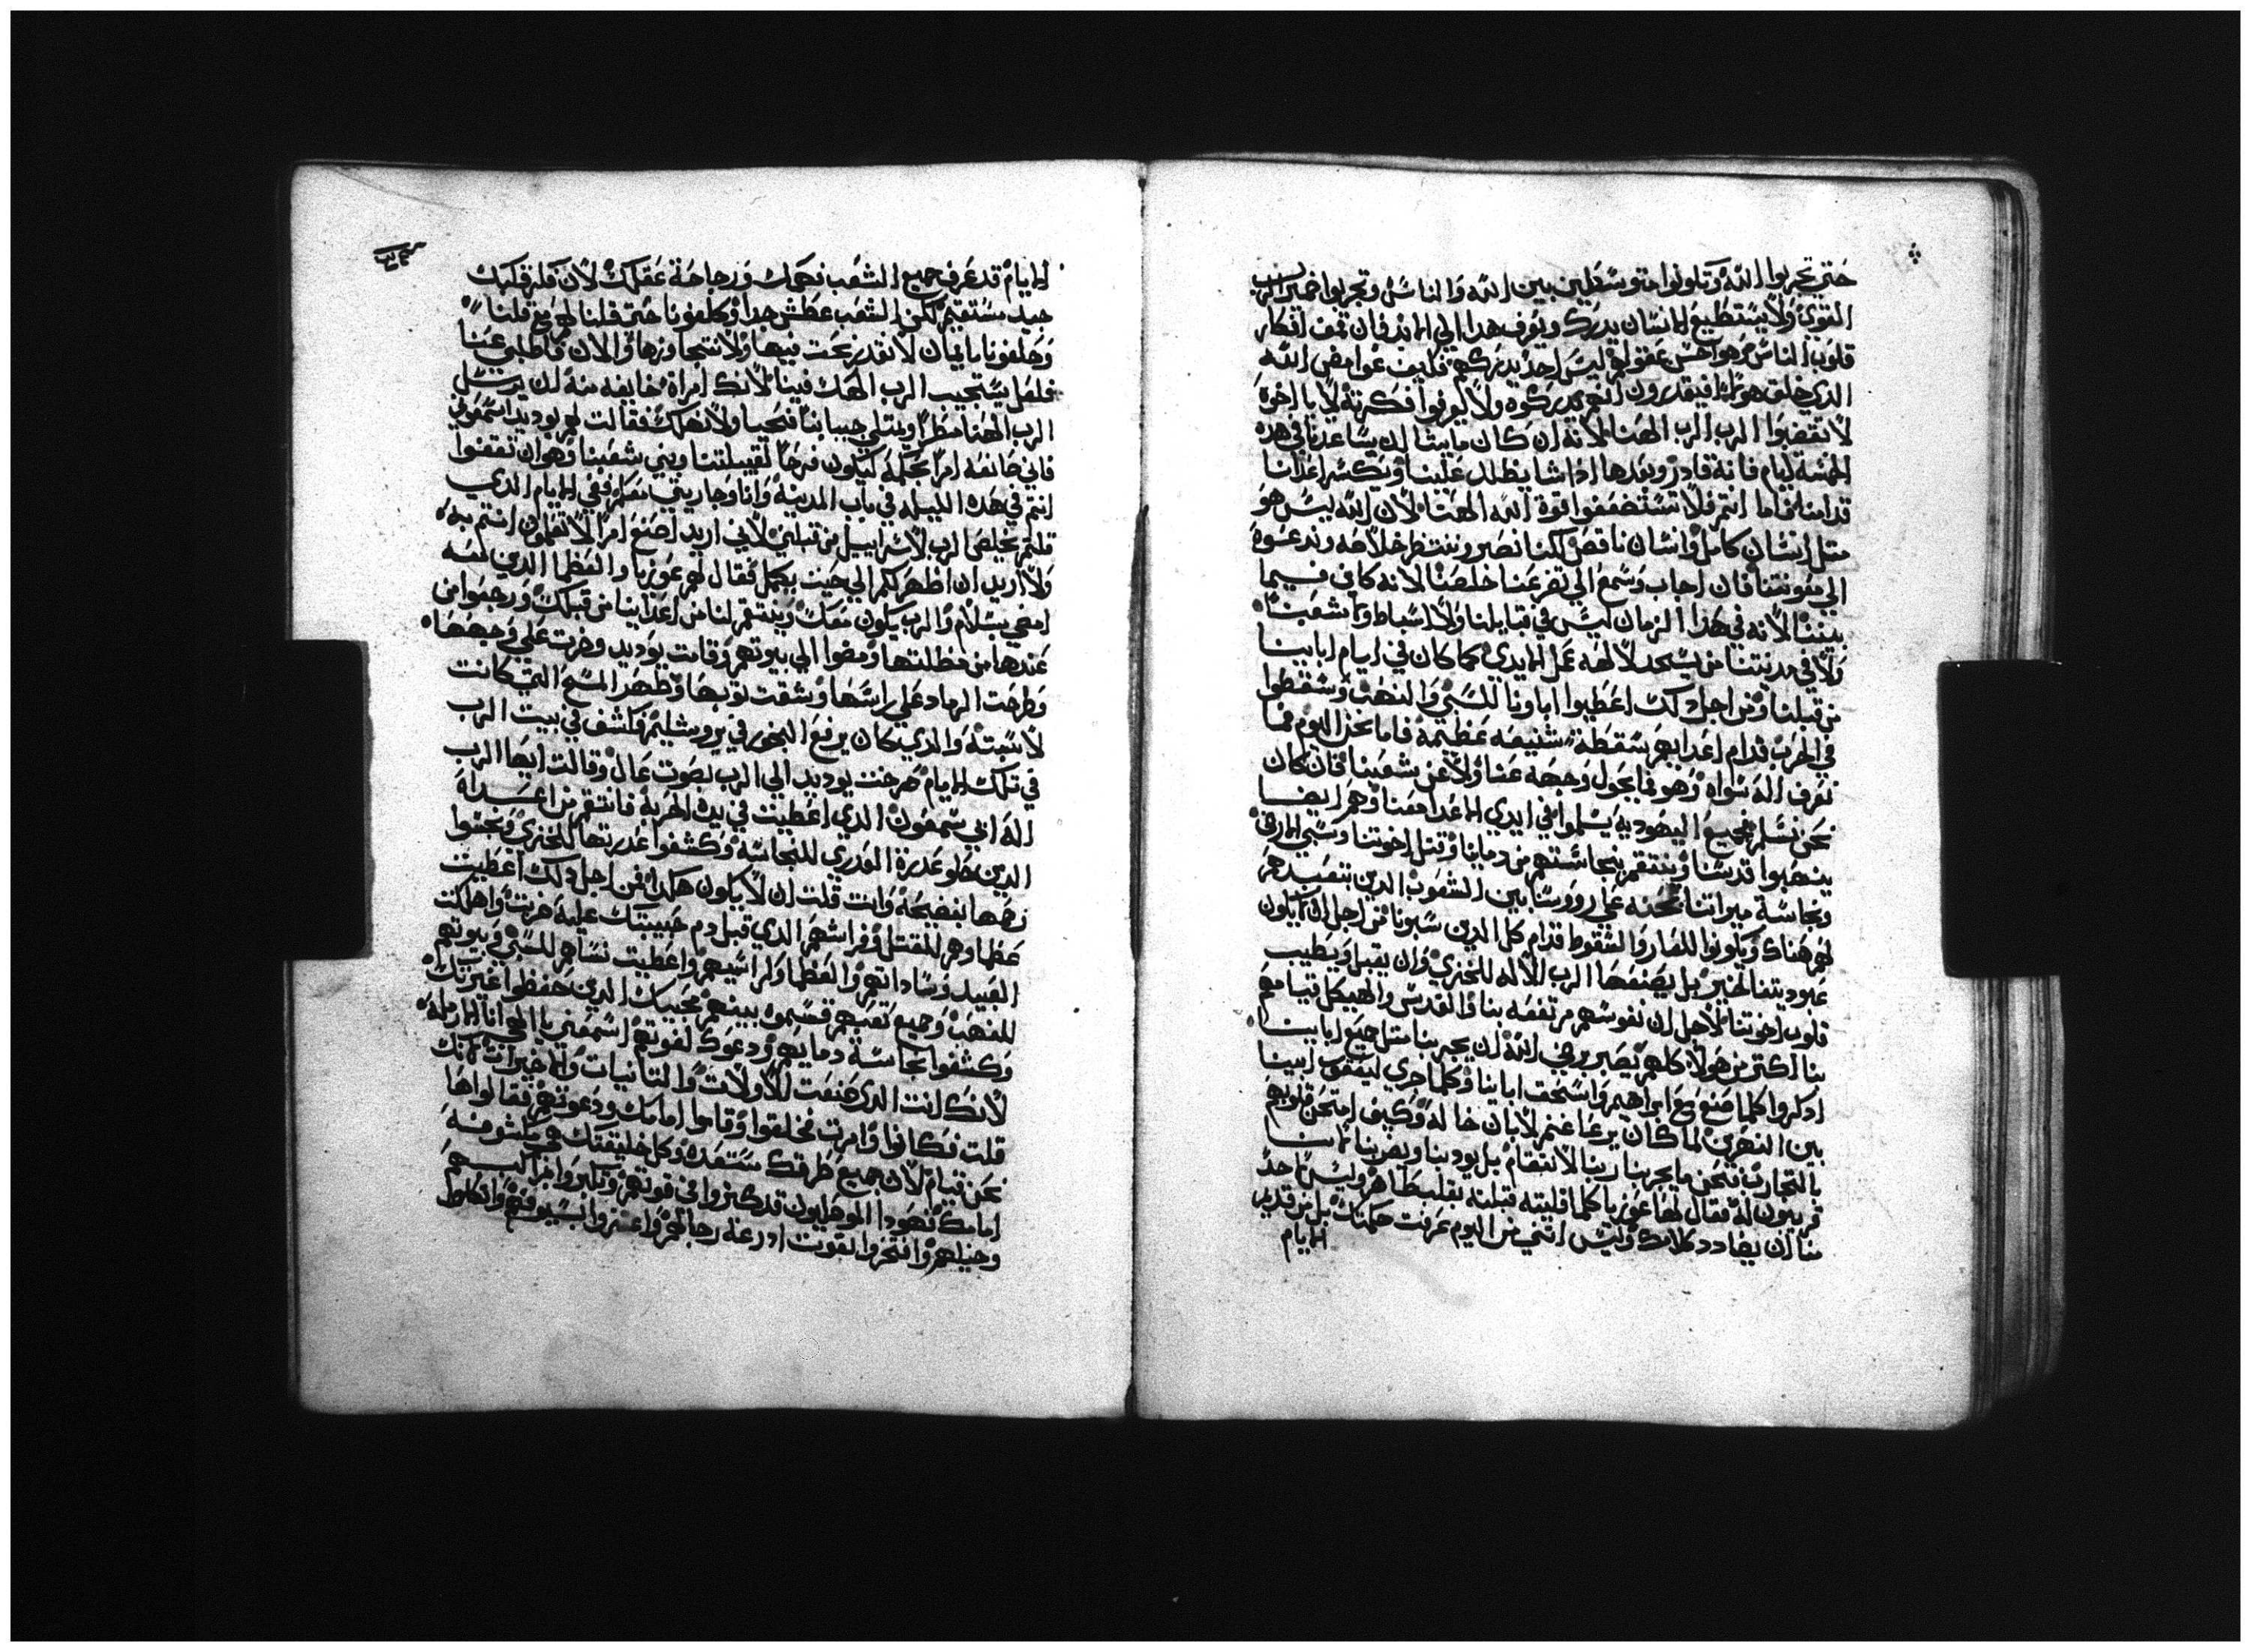 حتي تجربوا الله وتكونوا متوسطين بين الله والناس وتجربوا ضمير الرب
القوي ولا يستطيع الانسان يدرك ويعرف هدا الي الابد فان عمق افكار
قلوب الناس وهواجس عقولهم ليس احد يدركهم فكيف غوامض الله
الدي خلق هولاء افيقدرون انهم يدركوه ولا يعرفوا فكرته لا يا اخوه
لا تغضبوا الرب الرب الهنا لانه ان كان ما يشا ان يساعدنا في هده
الخمسة ايام فانه قادر وبعدها ادا شا يظلل علينا ويكسر اعدانا
قدامنا اما انتم فلا تستضعفوا قوة الله الهنا لان الله ليس هو
متل انسان كامل وانسان ناقص لكنا نصبر وننتظر خلاصه وندعوه
الي معونتنا فان اجاب وسمع الي تضرعنا خلصنا لانه كاين فيما
بيننا لانه في هدا الزمان ليس في قبايلنا ولا اسباط ولا شعبنا
ولا في مدينتنا من يسجد لالهه عمل الايدي كما كان في ايام ابايينا
من قبلنا ومن اجل دلك اعطيوا اباونا للسبي والنهب وسقطوا
في الحرب قدام اعدايهم سقطة شنيعه عظيمة فاما نحن اليوم فما
نعرف اله سواه وهو فما يحول وجهه عنا ولا عن شعبنا فان كان
نحن نسلم فجميع اليهوديه يسلموا في ايدي الاعدا معنا وهم ايضا
ينهبوا قدسنا وينتقم بنجاستهم من دماينا وقتل اخوتنا وسبي الارض
ونجاسة ميراتنا نجده علي رووسنا بين الشعوب الدين نتعبد لهم
لهم هناك ويكونوا للعار والسقوط قدام كل الدين سبونا من اجل ان لا يكون
عبوديتنا لخير بل يصنعها الرب الاله للخزي وان يقبل ويطيب
قلوب اخوتنا لاجل ان نفوسهم مرتفعه بنا والقدس والهيكل قيامهم
بنا اكتر من هولاء كلهم يصبر رضي الله ان يجربنا متل جميع ابايينا
ادكروا كلما صنع مع ابراهيم واسحق ابايينا وكلما جري ليعقوب ابينا
بين النهرين لما كان يرعا غنم لابان خاله وكيف امتحن قلوبهم
بالتجارب فنحن ما يجربنا ربنا لانتقام بل يودبنا ويضربنا لاننا
قريبون له فقال لها عوزيا كلما قلتيه قبلته بقلب طاهر وليس احد
منا ان يضادد كلامك وليس انني من اليوم عرفت حكمتك بل من قديم
الايام
الايام قد عرف جميع الشعب فهمك ورجاحة عقلك لان فكر قلبك
جيد مستقيم لكن الشعب عطش جدا وكلفونا حتي قلنا لهم مع قلنا
وحلفونا بايمان لا نقدر نحت فيها ولا نتجاوزها والان فاطلبي عنا
فلعل يستجيب الرب الهك فينا لانك امراة خايفه منه ان يرسل
الرب الهنا مطرا ويمتلي جبابنا فنحيا ولا نهلك فقالت لهم يوديد اسمعوني
فاني صانعه امرا بحكمة ليكون فرحا لقبيلتنا وبني شعبنا وهو ان تقفوا
انتم في هده الليله في باب المدينة وانا وجاريتي نعبر ففي الايام الدي
قلتم يخلص الرب لاسراييل من قبلي لاني اريد اصنع امرا لا تعلمون انتم به
ولا اريد ان اظهر لكم الي حيت يكمل فقال لهم عوزيا والعظما الدين معه
امضي بسلام والرب يكون معك وينتقم لنا من اعداينا من قبلك ورجعوا من
عندها من مظلتها ومضوا الي بيوتهم وقامت يوديد وخرت علي وجهها
وطرحت الرماد علي راسها وشقت توبها وظهر المسح التي كانت
لابسته والدي كان يرفع البخور في يروشليم فكشف في بيت الرب
في تلك الايام صرخت يوديد الي الرب بصوت عال وقالت ايها الرب
اله ابي سمعون الدي اعطيت في يده الحربة فانتقم من اعداه
الدين حلو عدرة العدري للنجاسه وكشفوا عدريتها للخزي ونجسوا
رحمها بفضيحة وانت قلت ان لا يكون هكدا فمن اجل دلك اعطيت
عظماوهم للقتل وفراشهم الدي قبل دم حبيبتك عليه هربت واهلكت
العبيد وساداتهم والعظما ولراسيهم واعطيت نساهم للسبي وبيوتهم
للنهب وجميع تعبهم قسموه بينهم محبيك الدين حفظوا غيرتك
وكشفوا نجاسة دمايهم ودعوك لقوتهم اسمعني يا الهي انا الارمله
لانك انت الدي صنعت للاولات والتانيات والاخيرات لانك
قلت فكانوا وامرت فخلقوا وقاموا امامك ودعوتهم فقالوا ها
نحن قيام لان جميع طرقك مستعده وكل خليقتك هي مكشوفه
امامك فهودا الموصليون قد كتروا في قوتهم وتكبروا في راكبيهم
وخيلهم وافتخروا بقوت ادرعة رجالهم واعتزوا بسيوفهم واتكلوا